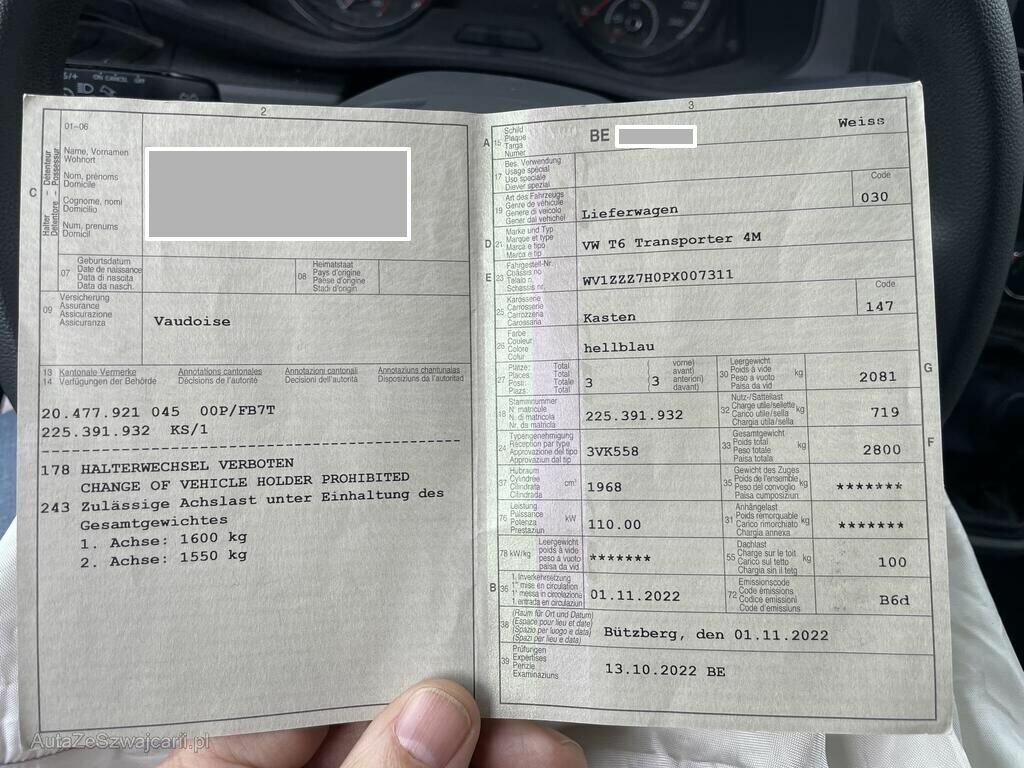 2
01-06
C
Halter - Détenteur
Detentore - Possessur
Name, Vornamen
Wohnort
Nom, prénoms
Domicile
Cognome, nomi
Domicilio
Num, prenums
Domicil
07
Geburtsdatum
Date de naissance
Data di nascita
Data da nasch.
08
Heimatstaat
Pays d'origine
Paese d'origine
Stadi d'origin
09
Versicherung
Assurance
Assicurazione
Assicuranza
Vaudoise
13 Kantonale Vermerke Annotations cantonales Annotazioni cantonali Annotaziuns chantunalas
14 Verfügungen der Behörde Décisions de l'autorité Decisioni dell'autorità Disposiziuns da l'autoritad
20.477.921 045 00P/FB7T
225.391.932 KS/1
178 HALTERWECHSEL VERBOTEN
CHANGE OF VEHICLE HOLDER PROHIBITED
243 Zulässige Achslast unter Einhaltung des
Gesamtgewichtes
1. Achse: 1600 kg
2. Achse: 1550 kg
3
A 15
Schild
Plaque
Targa
Numer
BE
Weiss
17
Bes. Verwendung
Usage spécial
Uso speciale
Diever spezial
19
Art des Fahrzeugs
Genre de véhicule
Genere di veicolo
Gener dal vehichel
Lieferwagen
Code
030
D 21
Marke und Typ
Marque et type
Marca e tipo
Marca e tip
VW T6 Transporter 4M
E 23
Fahrgestell-Nr.
Châssis no
Telaio n.
Schassis nr.
WV1ZZZ7H0PX007311
25
Karosserie
Carrosserie
Carrozzeria
Carossaria
Kasten
Code
147
26
Farbe
Couleur
Colore
Colur
hellblau
27
Plätze: Total
Places: Total
Posti: Totale
Plazs: Total
3
( 3
vorne)
avant)
anteriori)
davant)
30
Leergewicht
Poids à vide
Peso a vuoto
Paisa da vid
kg
2081
G
18
Stammnummer
N° matricule
N. di matricola
Nr. da matricla
225.391.932
32
Nutz-/Sattellast
Charge utile/sellette
Carico utile/sella
Chargia utila/sella
kg
719
24
Typengenehmigung
Réception par type
Approvazione del tipo
Approvaziun dal tip
3VK558
33
Gesamtgewicht
Poids total
Peso totale
Paisa totala
kg
2800
F
37
Hubraum
Cylindrée
Cilindrata
Cilindrada
cm³
1968
35
Gewicht des Zuges
Poids de l'ensemble
Peso del convoglio
Paisa cumposiziun
kg
*******
76
Leistung
Puissance
Potenza
Prestaziun
kW
110.00
31
Anhängelast
Poids remorquable
Carico rimorchiato
Chargia annexa
kg
*******
78 kW/kg
Leergewicht
poids à vide
peso a vuoto
paisa da vid
*******
55
Dachlast
Charge sur le toit
Carico sul tetto
Chargia sin il tetg
kg
100
B 36
1. Inverkehrsetzung
1re mise en circulation
1a messa in circolazione
1. entrada en circulaziun
01.11.2022
72
Emissionscode
Code émissions
Codice emissioni
Code d'emissiuns
B6d
38
(Raum für Ort und Datum)
(Espace pour lieu et date)
(Spazio per luogo e data)
(Spazi per lieu e data)
Bützberg, den 01.11.2022
39
Prüfungen
Expertises
Perizie
Examinaziuns
13.10.2022 BE
AutaZeSzwajcarii.pl